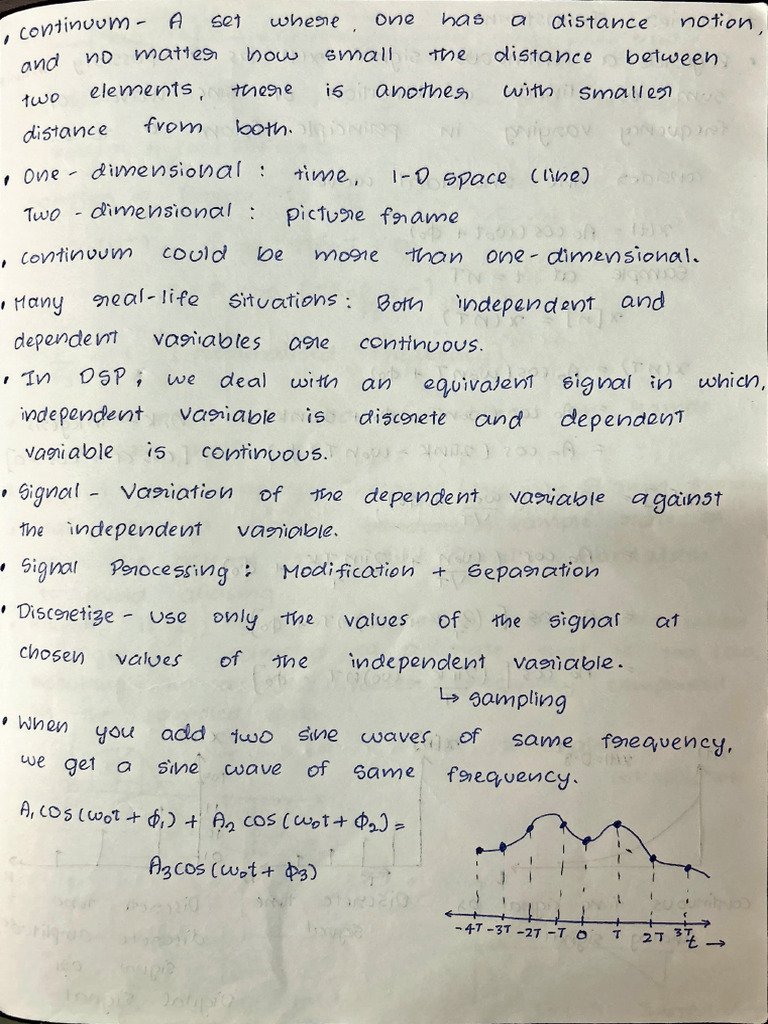 • Continuum - A set where, one has a distance notion,
and no matter how small the distance between
two elements, there is another with smaller
distance from both.
• One-dimensional : time, 1-D space (line)
Two-dimensional : picture frame
• Continuum could be more than one-dimensional.
• Many real-life situations: Both independent and
dependent variables are continuous.
• In DSP; we deal with an equivalent signal in which,
independent variable is discrete and dependent
variable is continuous.
• Signal - Variation of the dependent variable against
the independent variable.
• Signal Processing: Modification + Separation
• Discretize - use only the values of the signal at
chosen values of the independent variable.
↳ sampling
• When you add two sine waves of same frequency,
we get a sine wave of same frequency.
A₁cos(ω₀t + φ₁) + A₂ cos(ω₀t + φ₂) =
A₃cos(ω₀t + φ₃)
-4T -3T -2T -T 0 T 2T 3T t →